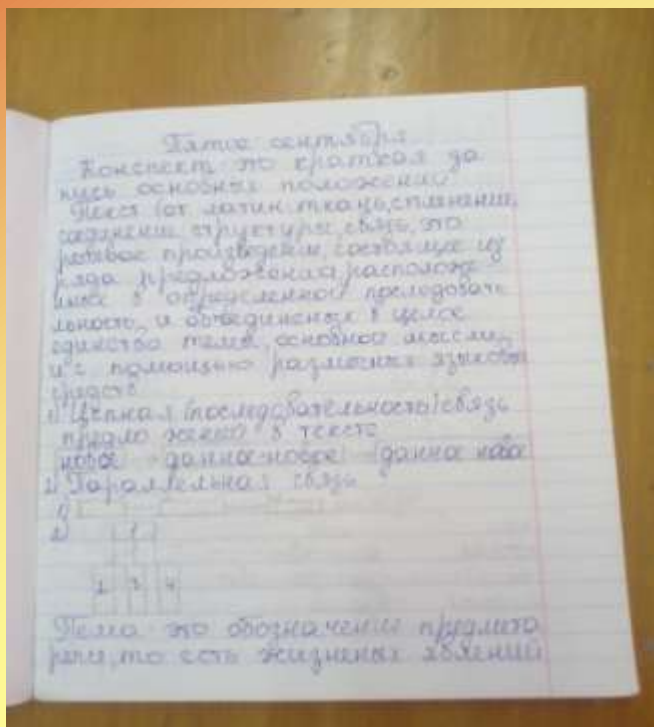 Пятое сентября
Конспект это краткая за
пись основных положений
Текст (от латин. ткань, сплетение,
соединение, структура, связь, это
речевое произведение, состоящее из
ряда предложений, расположе
нных в определенной последовате
льность, и объединеных в целое
единством темы, основной мысли,
и с помощью различных языковых
средств
1) Цепная (последовательность) связь
предложений в тексте
новое данное-новое данное ново
2) Параллельная связь
1)
2) 1
2 3 4
Тема это обозначение предмета
речи, то есть жизненых явлений